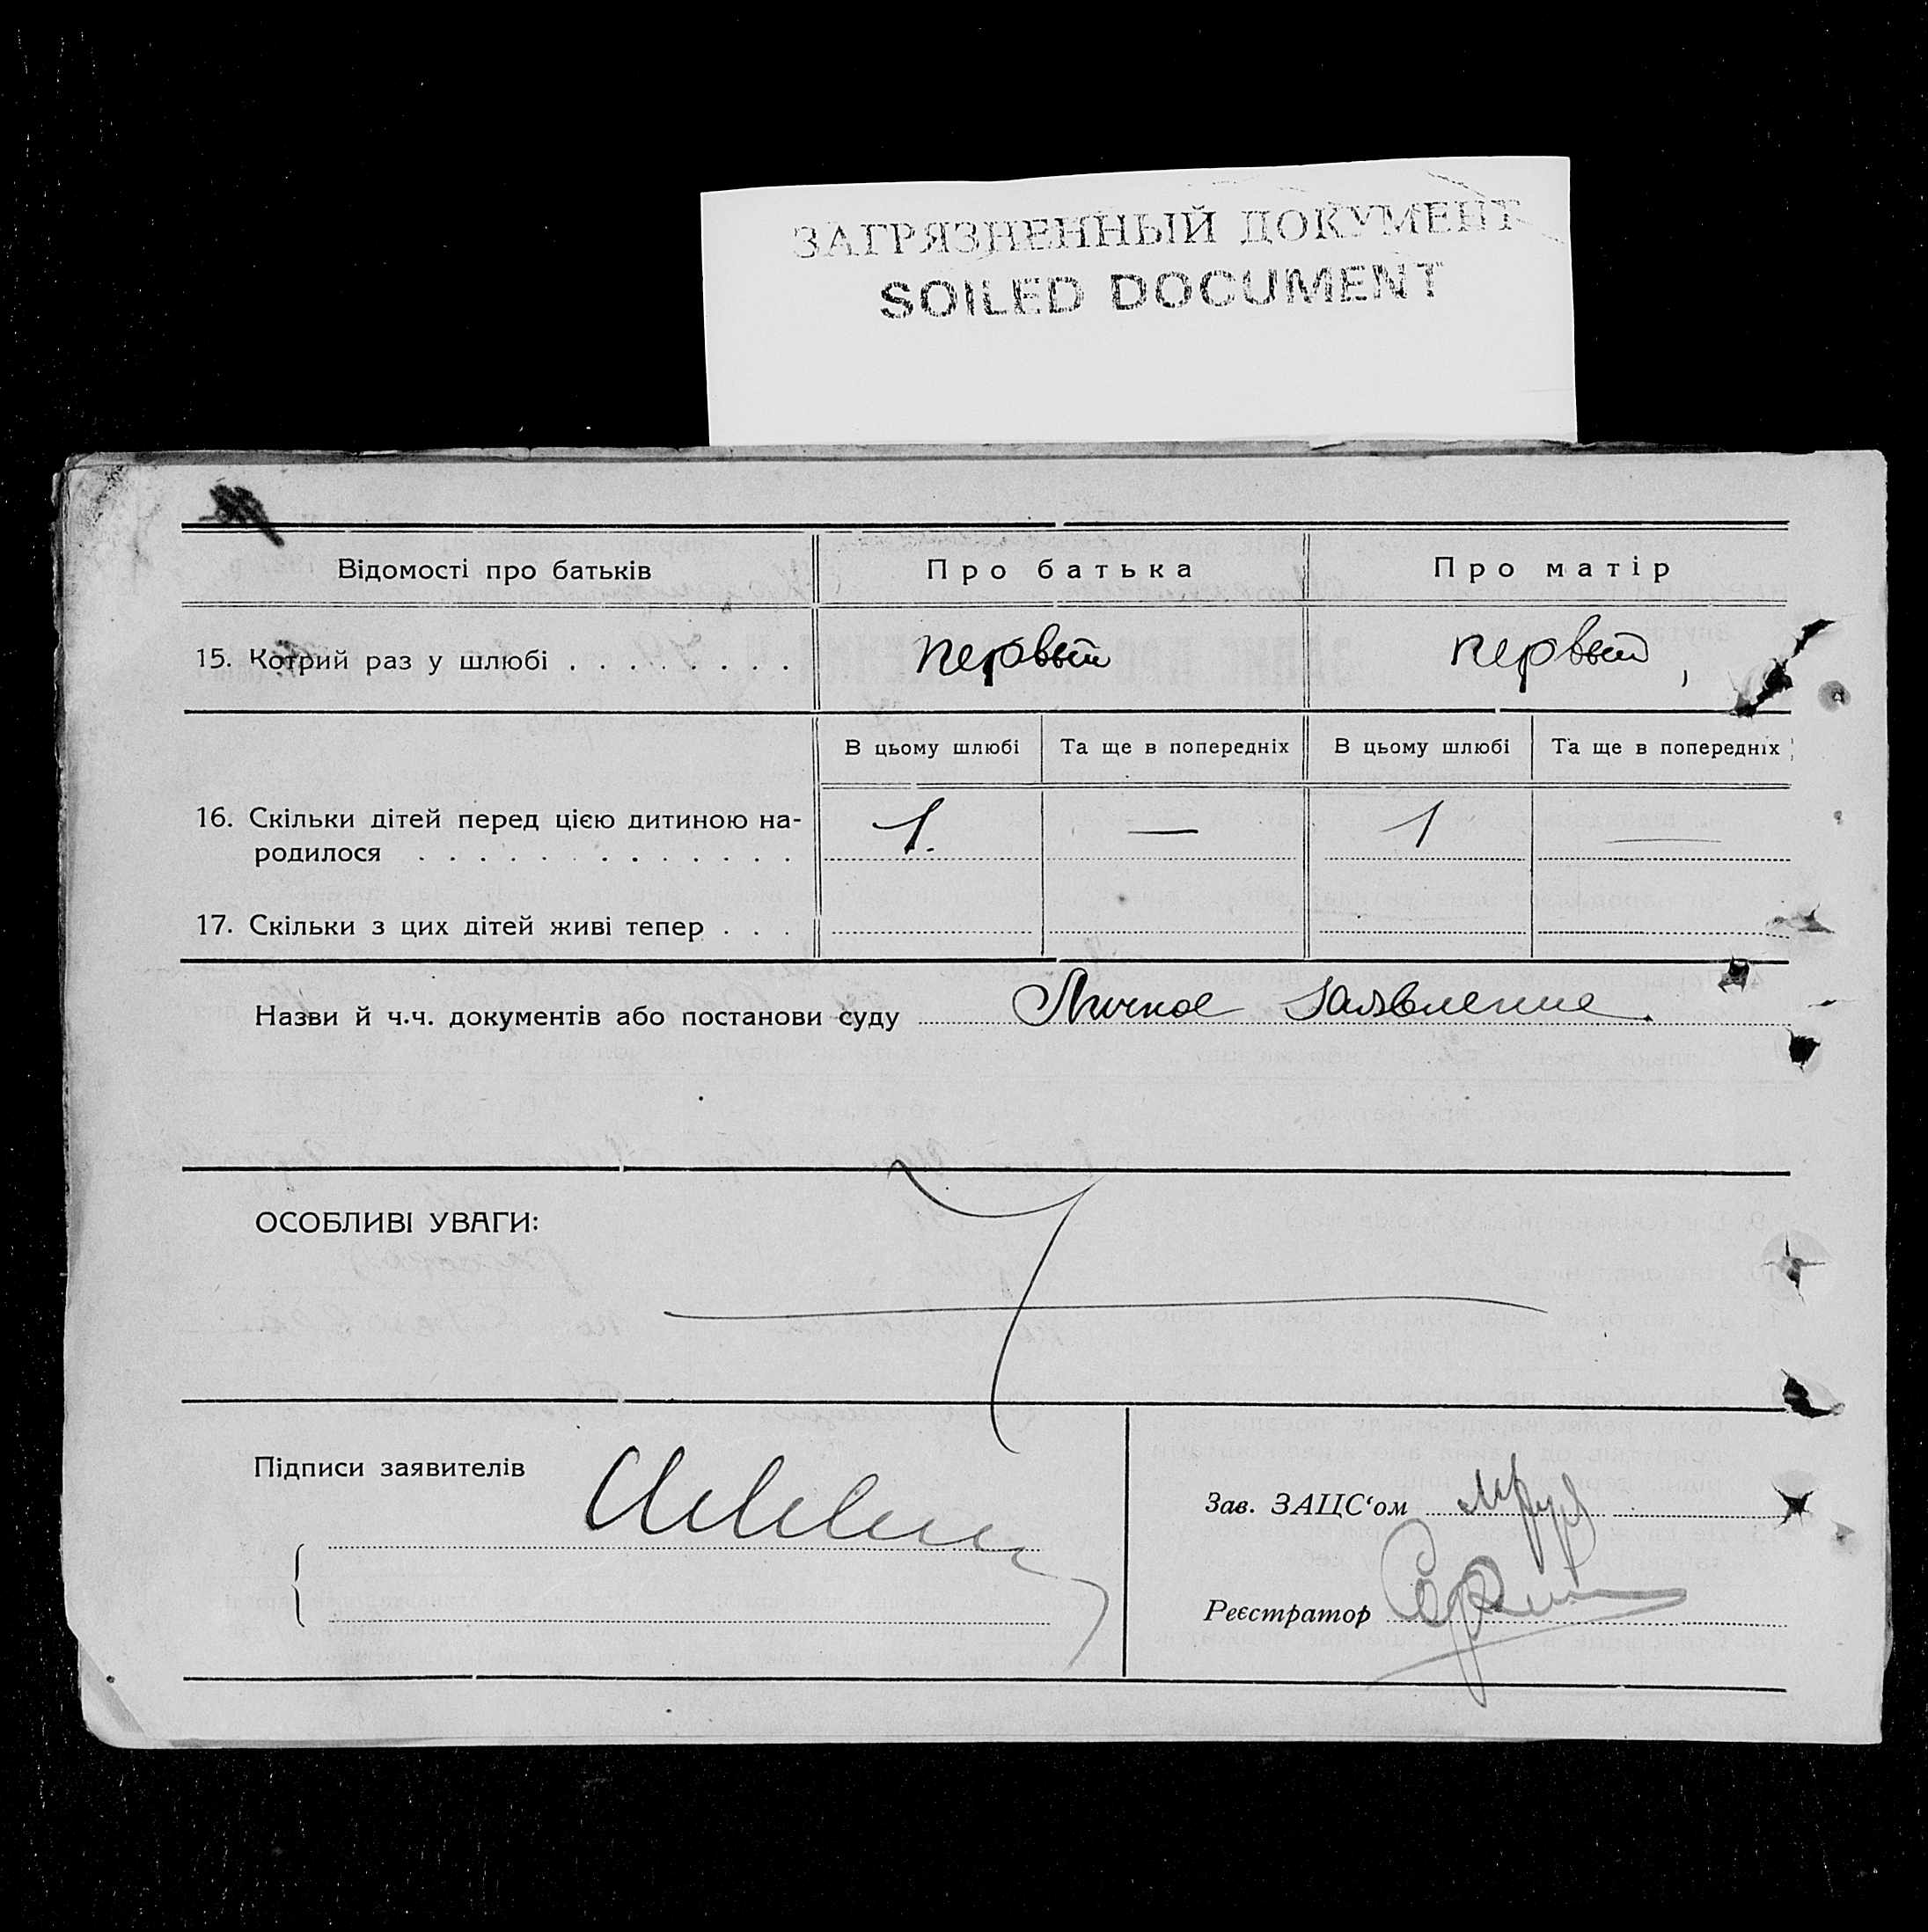 ЗАГРЯЗНЕННЫЙ ДОКУМЕНТ
SOILED DOCUMENT
Відомості про батьків Про батька Про матір
15. Котрий раз у шлюбі . . . . . . . . первый первый,
В цьому шлюбі Та ще в попередніх В цьому шлюбі Та ще в попередніх
16. Скільки дітей перед цією дитиною на-
родилося . . . . . . . . . . . . . 1. — 1 —
17. Скільки з цих дітей живі тепер . . .
Назви й ч.ч. документів або постанови суду Личное заявление.
ОСОБЛИВІ УВАГИ:
Підписи заявителів
Зав. ЗАЦС‘ом
Реєстратор